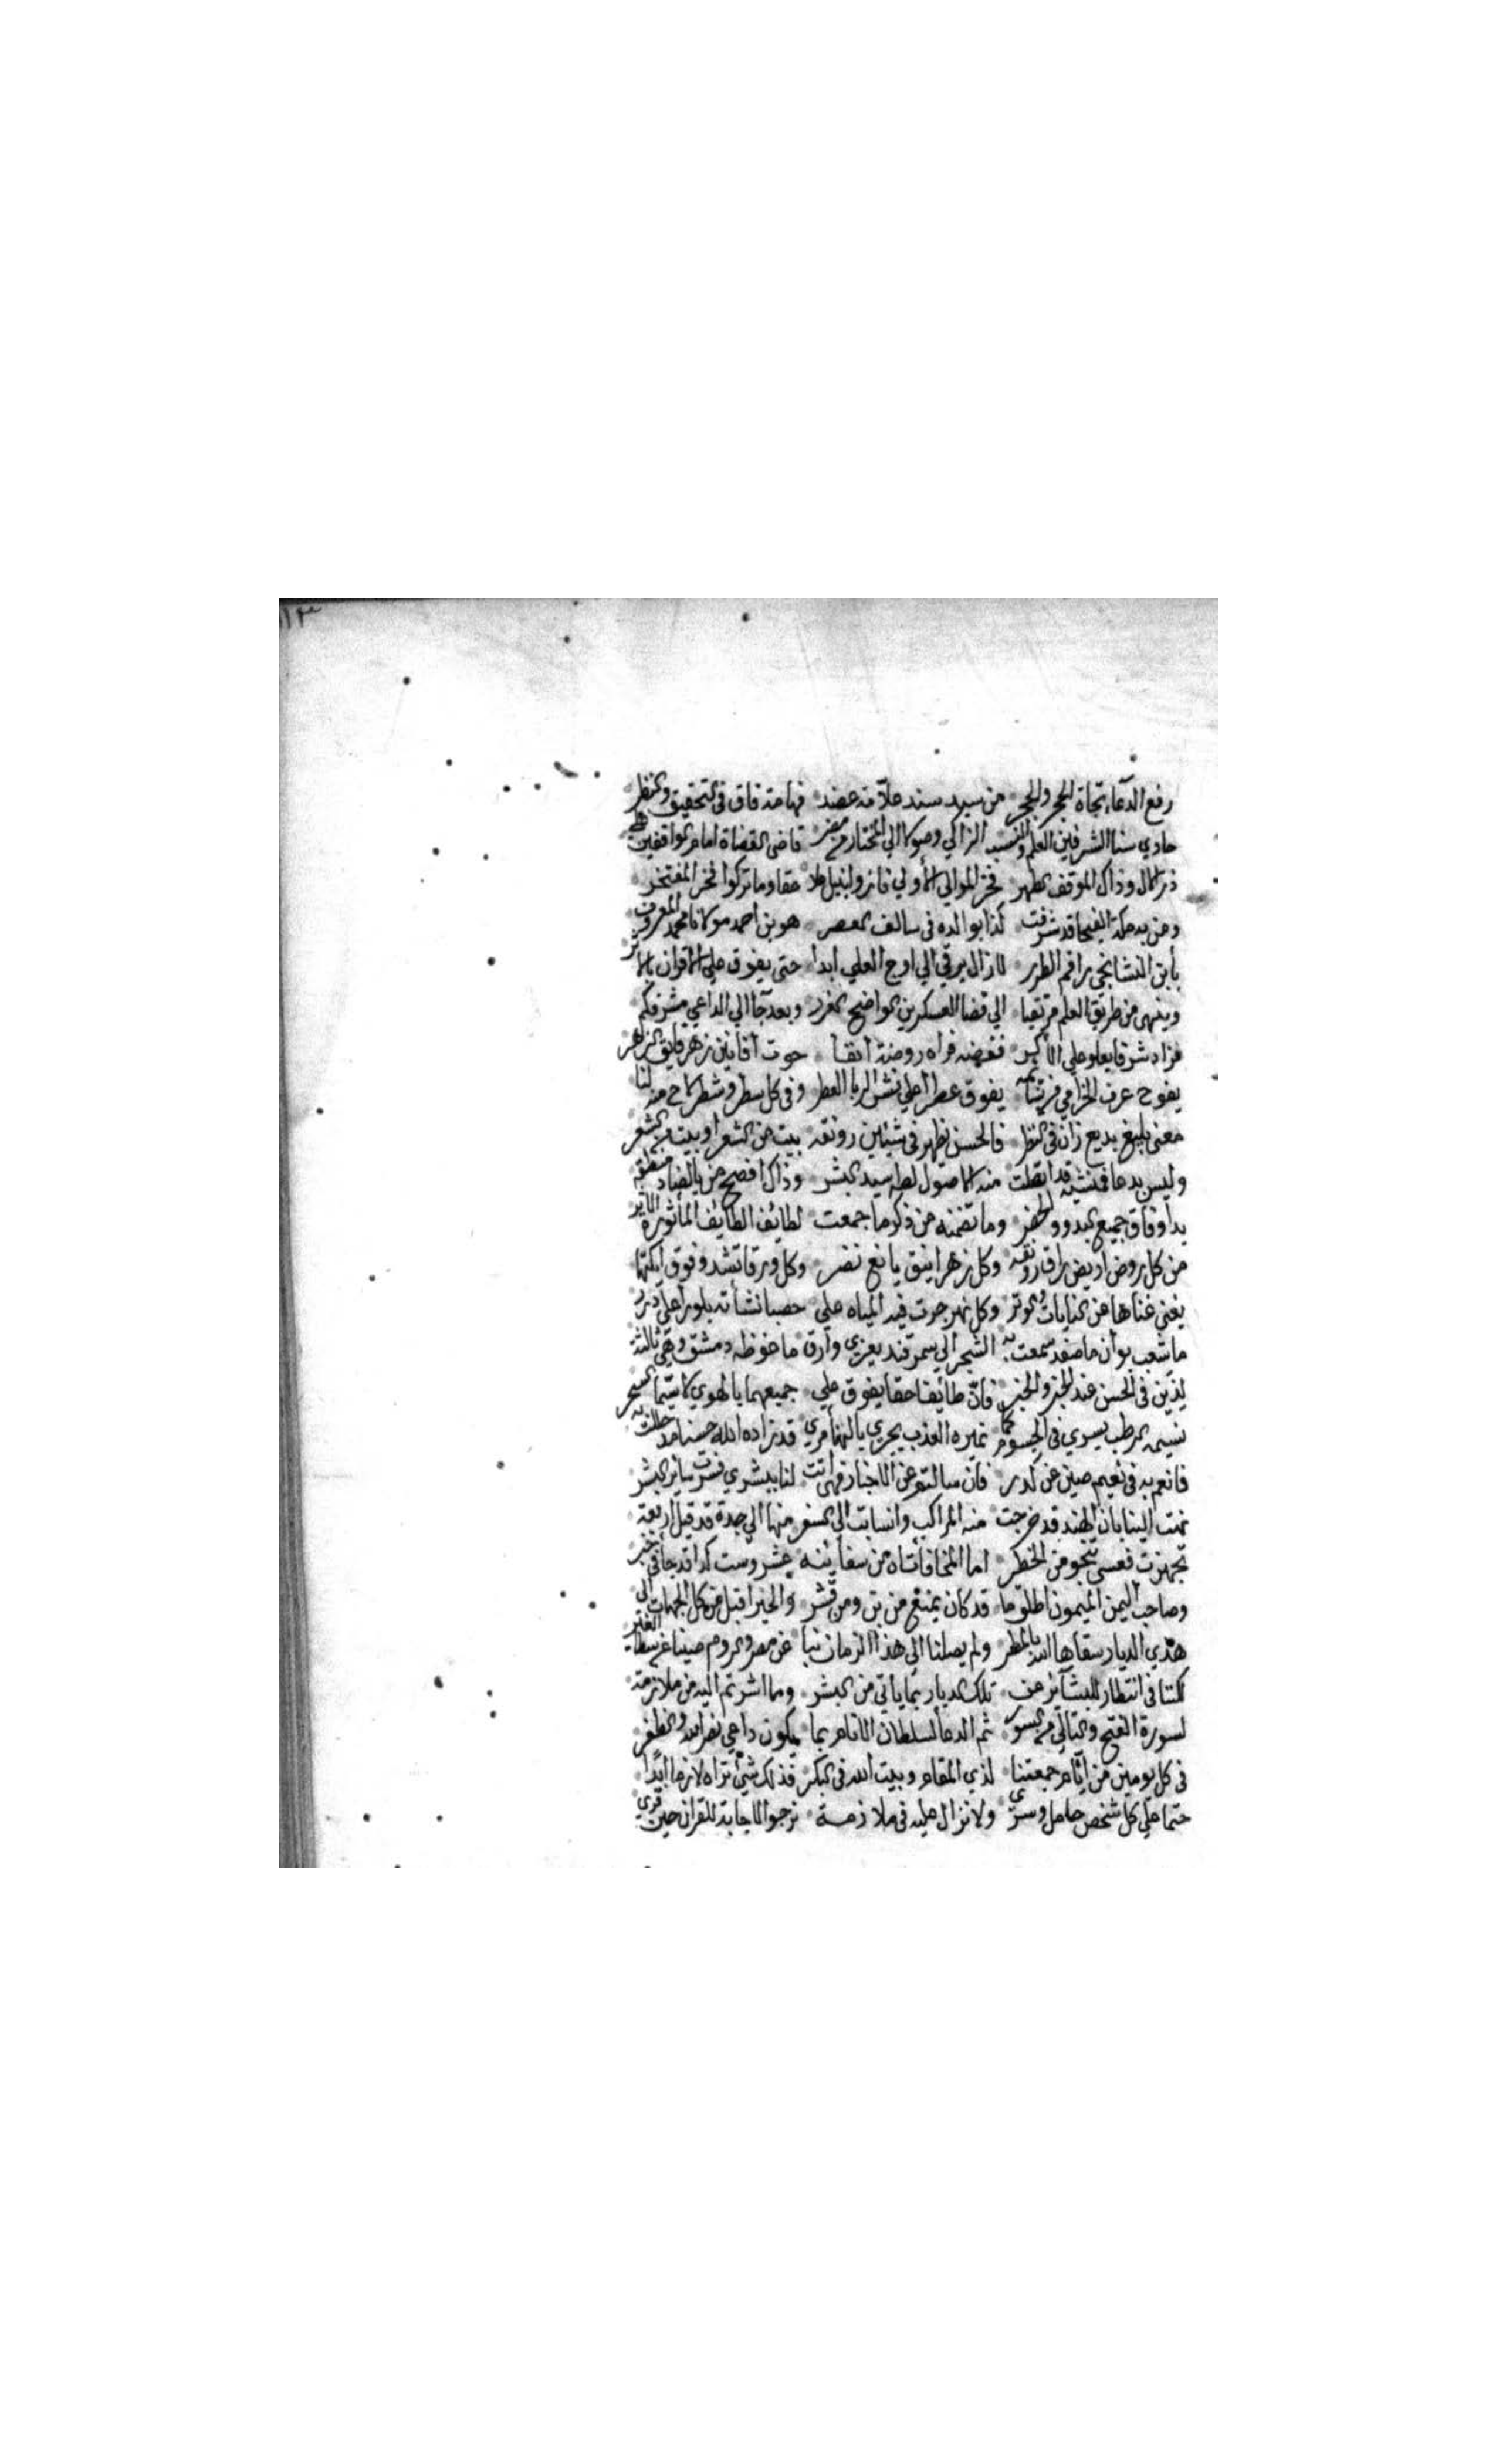 ١١٣
رفع الدعاء تجاه الحجر والحجر من سيد سند علامة عضد فهامة فاق في التحقيق والنظر
حاوي سنا الشرفين العلم والنسب الزاكي وصولا الي المختار من مضر قاضي القضاة امام الواقفين علي
ذرالال وذاك الموقف الطهر فخر الموالي الأولي فازوا بنيل علا حقا وما تركوا فخرا لمفتخر
ومن به مكة الفيحا قد شرفت كذا بوالده في سالف العصر هو بن احمد مولانا محمد المعروف
بأبن النشانجي راقم الطرر لازال يرقي الي اوج العلي ابدا حتي يفوق علي الاقران بالاثر
وينهي من طريق العلم مرتقيا الي قضا العسكرين الواضح الغرر وبعد جا الي الداعي مشرفكم
فزاد شرفا يعلو علي الأكبر ففضه فراه روضة أنفا حوت أفانين زهر فايق الزهر
يفوح عرف الخزامي من يفوق عطرا علي نشر الربا العطر وفي كل سطر وشطر لاح منه لنا
معني بليغ بديع زان في النظر فالحسن يظهر في شيئين رونقه بيت من الشعر أو بيت من الشعر
وليس بدعا فمنشيه قد اتصلت منه الاصول لطه سيد البشر وذاك افصح من بالضاد منطقه
بدا وفاق جميع البدو والحضر وما تضمنه من ذكر ما جمعت لطائف الطايف المأثورة الاثر
من كل روض اريض راق رونقه وكل زهر انيق يانع نضر وكل ورقا تشدو فوق ايكتها
يغني غناها عن النايات والوتر وكل نهر جرت فيه المياه علي حصبا نشأته بلور أعلي درر
ما شعب بوان ما صغد سمعت به الشحر الي سمرقند يعزي وارق ما غوطه دمشق وهي ثالثة
لذين في الحسن عند الخبر والخبر فان طائفنا حقا يفوق علي جميعهما بالهوي لا سيما السحر
نسيمه الرطب يسري في الجسوم كما نميره العذب يجري بالهنا مري قد زاده الله حسنا مذ حللت به
فانعم به في نعيم صين عن كدر فان سالتم عن الاخبار فهي أتت لنا ببشري فسرت ساير البشر
نمت الينا بان الهند قد خرجت منه المراكب وانسابت الي السفر منها الي جدة قد قيل اربعة
تجهزت فعسي تنجو من الخطر اما المخا فأتاه من سفاينه عشر وست كذا قد جا في خبر
وصاحب اليمن الميمون اطلق ما قد كان يمنع من بن ومن قشر والخير اقبل من كل الجهات الي
هذي الديار سقاها الله بالمطر ولم يصلنا الي هذا الزمان نبا عن مصر والروم صينا عن سطا الغير
لكننا في انتظار للبشآئر من تلك الديار بما يأتي من البشر وما اشرتم اليه من ملازمة
لسورة الفتح والتالي من السور ثم الدعا لسلطان الانام بما يكون داعي نصر الله والظفر
في كل يومين من ايام جمعتنا لذي المقام وبيت الله في البكر فذلك شئ تراه لازما أبدا
حتما علي كل شخص حامل وسري ولا نزال عليه في ملازمة نرجوا الاجابة للقران حين قري